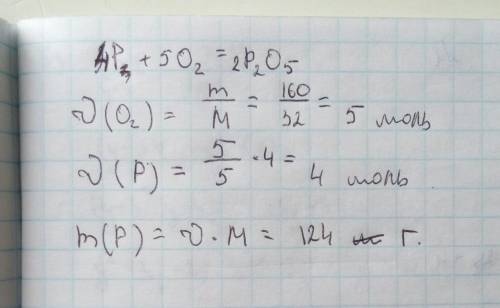 4P + 5O₂ = 2P₂O₅
ν(O₂) = m/M = 160/32 = 5 моль
ν(P) = 5/5 · 4 = 4 моль
m(P) = ν · M = 124 г.